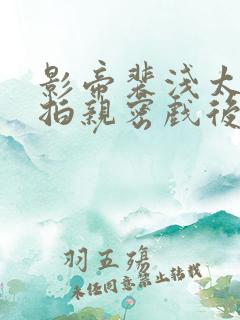 影帝裴浅太
拍親密戲後
羽五殤
未經同意禁止轉載